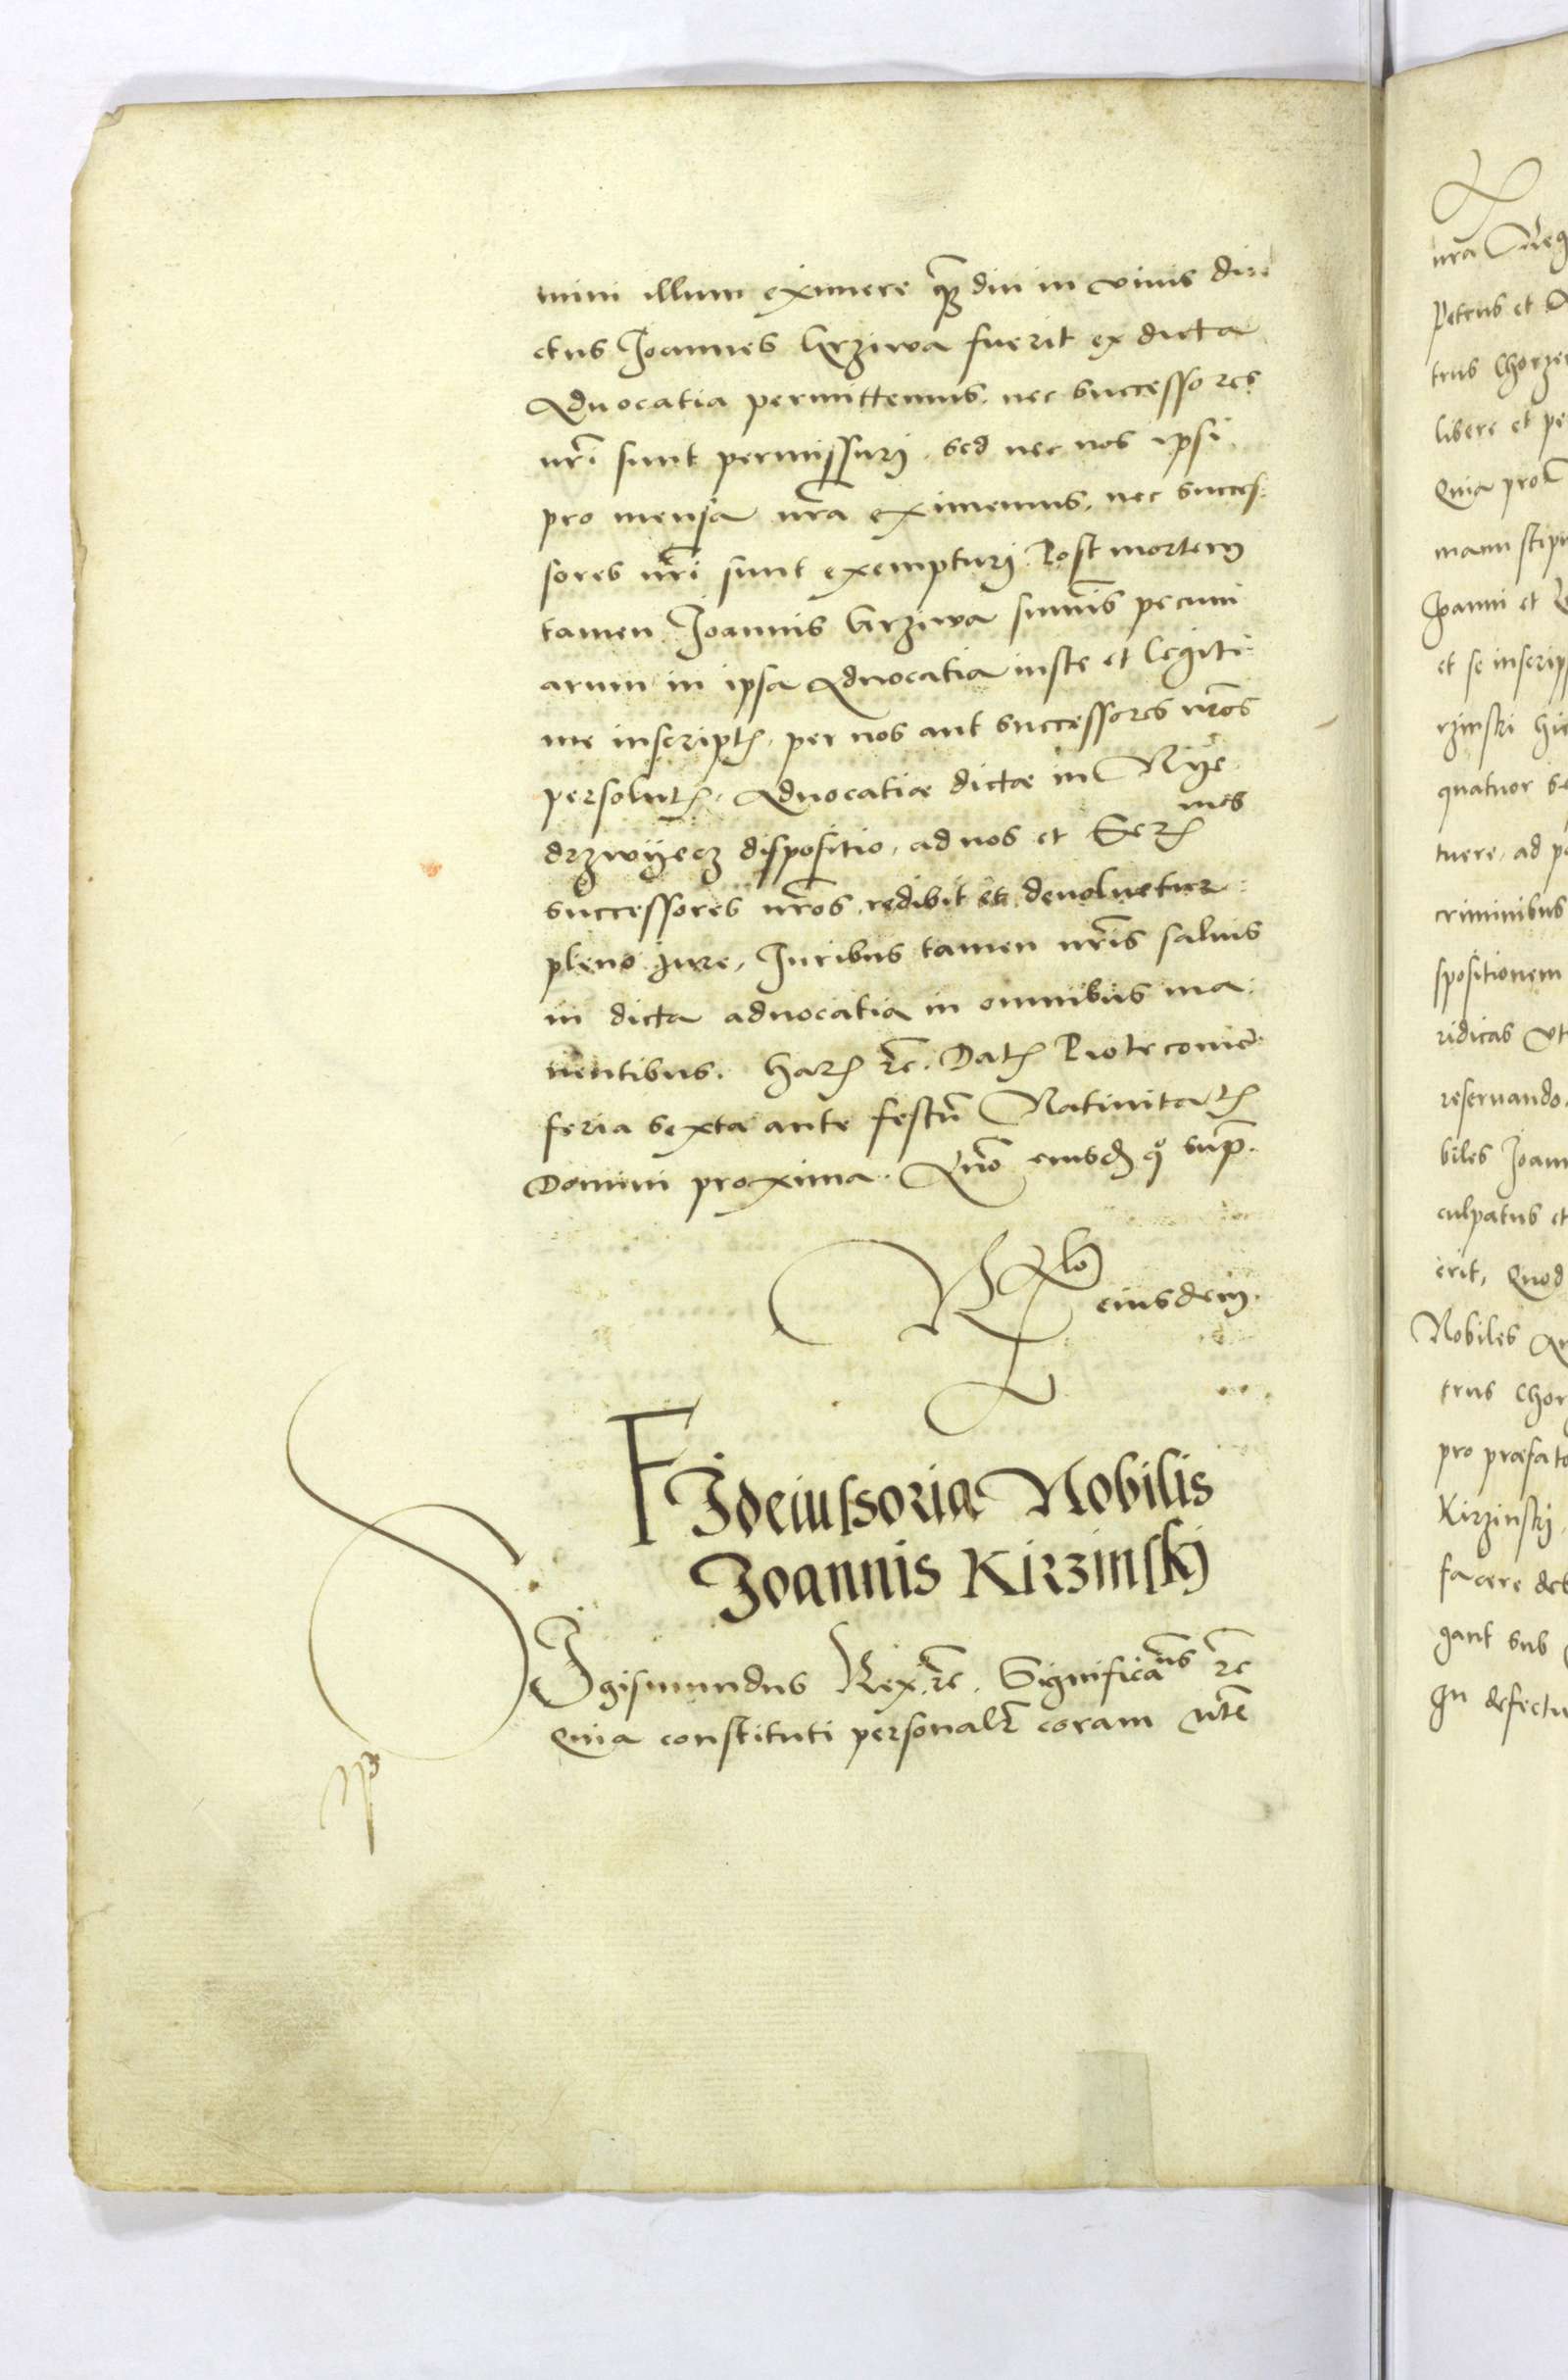 mini illum eximere qȝ diu in viuis dire
ctus Joannes Krziwa fuerit ex dicta
Aduocatia permittemus. nec successores
nrī sunt permissuri. sed nec nos ipsi
pro mensa nrā eximemus. nec succes:
sores nrī sunt exempturi. Post mortem
tamen Joannis Krziwa summis pecuni
arum in ipsa Aduocatia iuste et legiti:
me inscriptꝭ. per nos aut successores nrōs
persolutꝭ. Aduocatiæ dictæ in Nye
drzwyecz dispositio, ad nos et Serꝭ mos
successores nrōs redibit et deuoluetur
pleno iure, Juribus tamen nrīs saluis
in dicta aduocatia in omnibus ma:
nentibus. Harꝭ rc̄. Datꝭ Piotrcouie
feria sexta ante festū Natiuitatꝭ
Domini proxima. Anō eiusdꝭ qͦ sup̄.
Rlō
eiusdem.
FIdeiussoria Nobilis
Joannis Kirzinskj
SIgismundus Rex rc̄. Significamus rc̄
Quia constituti personalr̄ coram
nrā
Petrus et
trus Chorze
libere et pe
Quia pro
manu stipu
Joanni et
et se inscrip
rzinski
quatuor
tuere, ad p
criminibus
spositionem
ridicas vt
reseruando
biles Joan
culpatus et
erit, Quod
Nobiles
trus Chor
pro præfato
Kirzinskj
facere deb
gant sub
In defectu